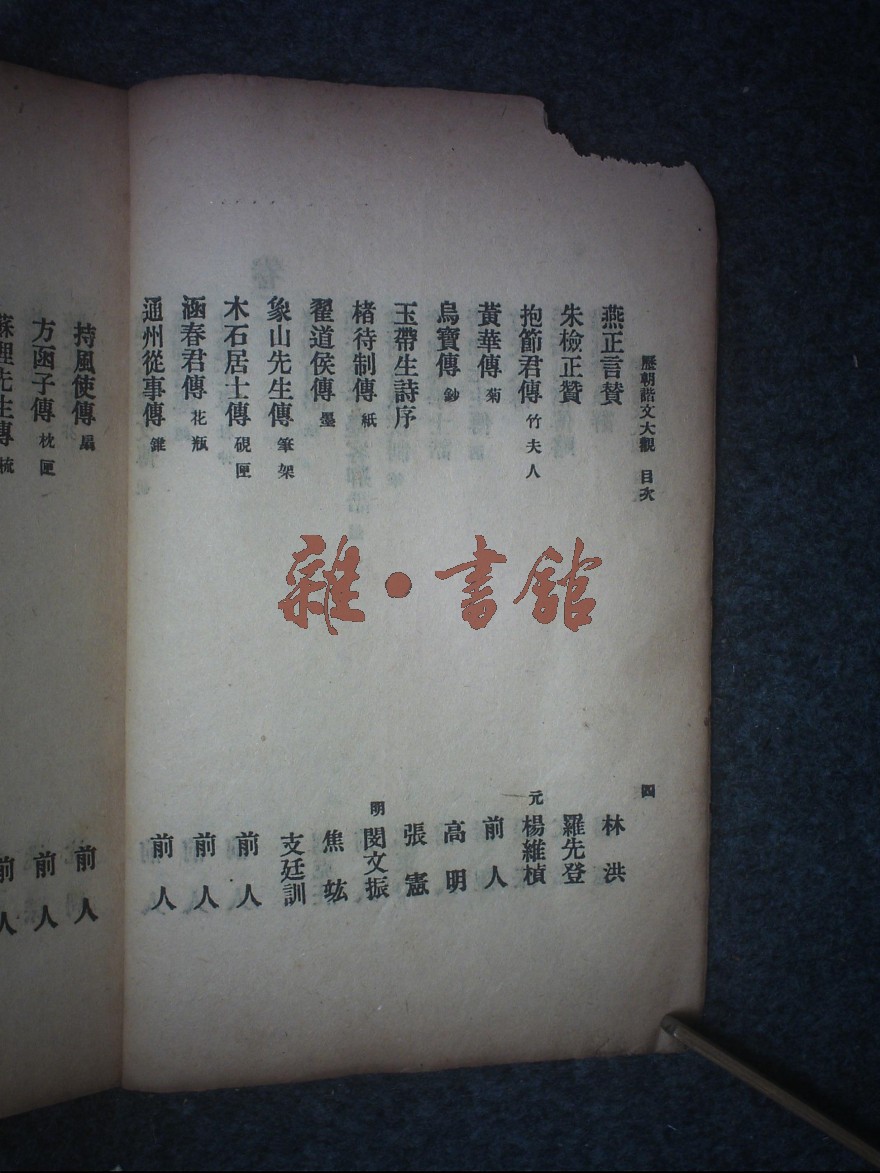 歷朝諧文大觀 目次 四
燕正言贊 林洪
朱檢正贊 羅先登
抱節君傳 竹夫人 元 楊維楨
黃華傳 菊 前人
烏寶傳 鈔 高明
玉帶生詩序 張憲
楮待制傳 紙 明 閔文振
翟道侯傳 墨 焦竑
象山先生傳 筆架 支廷訓
木石居士傳 硯匣 前人
涵春君傳 花瓶 前人
通州從事傳 錐 前人
持風使傳 扇 前人
方函子傳 枕匣 前人
先生傳 梳 前人
雜·書館